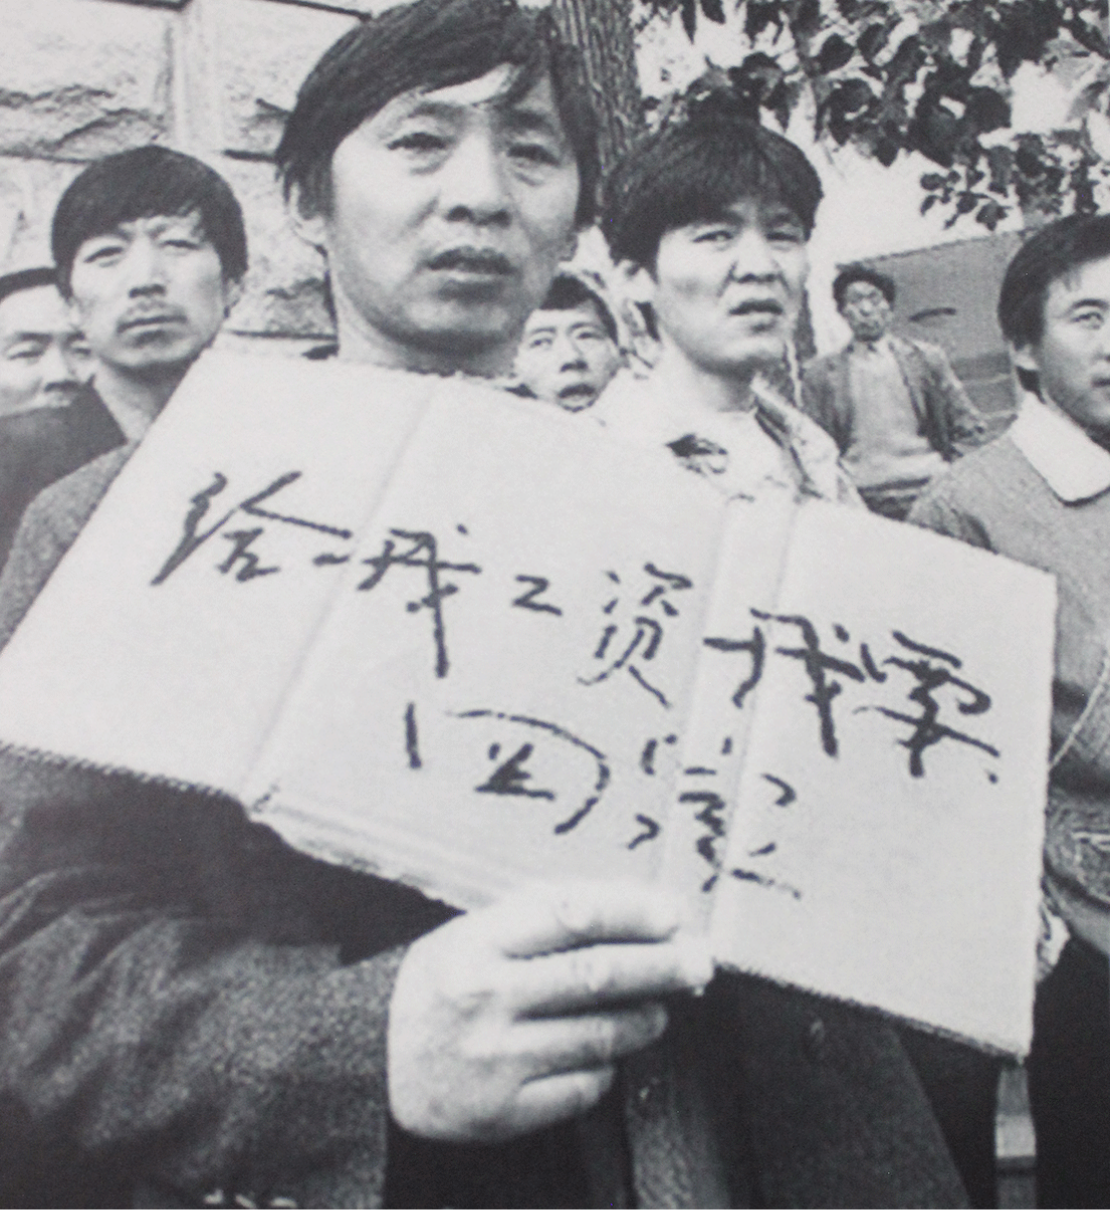 给我工资我要
回家